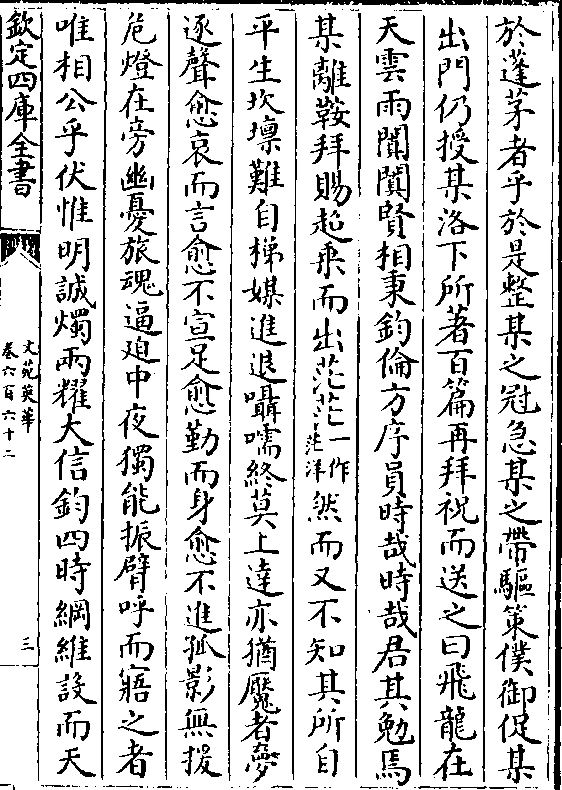 於蓬茅者乎於是整某之冠急某之帶驅策僕御促某
出門仍授某洛下所著百篇再拜祝而送之曰飛龍在
天雲雨闐闐賢相秉鈞倫方序員時哉時哉君其勉焉
某離鞍拜賜超乗而出茫茫一作茫洋然而又不知其所自
平生坎壈難自梯媒進退囁嚅終莫上達亦猶魘者夢
逐聲愈哀而言愈不宣足愈勤而身愈不進孤影無援
危燈在旁幽憂旅魂逼廹中夜獨能振臂呼而寤之者
唯相公乎伏惟明誠燭兩耀大信鈞四時綱維設而天
欽定四庫全書
文苑英華
卷六百六十二
三